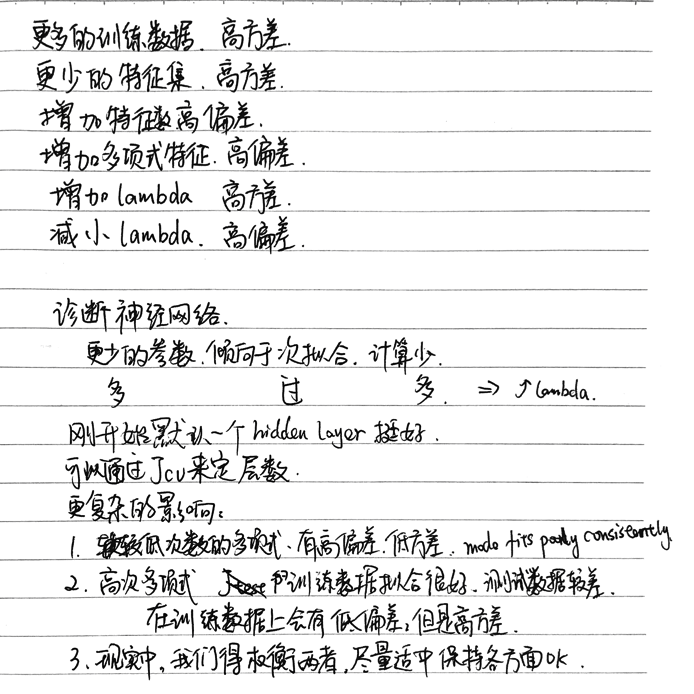 更多的训练数据. 高方差.
更少的特征集. 高方差.
增加特征数高偏差.
增加多项式特征. 高偏差.
增加 lambda 高方差.
减小 lambda. 高偏差.
诊断神经网络.
更少的参数. 倾向于欠拟合. 计算少.
多 过 多. ⇒ ↑lambda.
刚开始默认一个 hidden layer 挺好.
可以通过Jcv来定层数.
更复杂的影响:
1. 较低次数的多项式、有高偏差. 低方差. mode fits poorly consistently.
2. 高次多项式 训练数据拟合很好. 测试数据较差.
在训练数据上会有低偏差, 但是高方差.
3. 现实中, 我们得权衡两者, 尽量适中保持各方面OK.